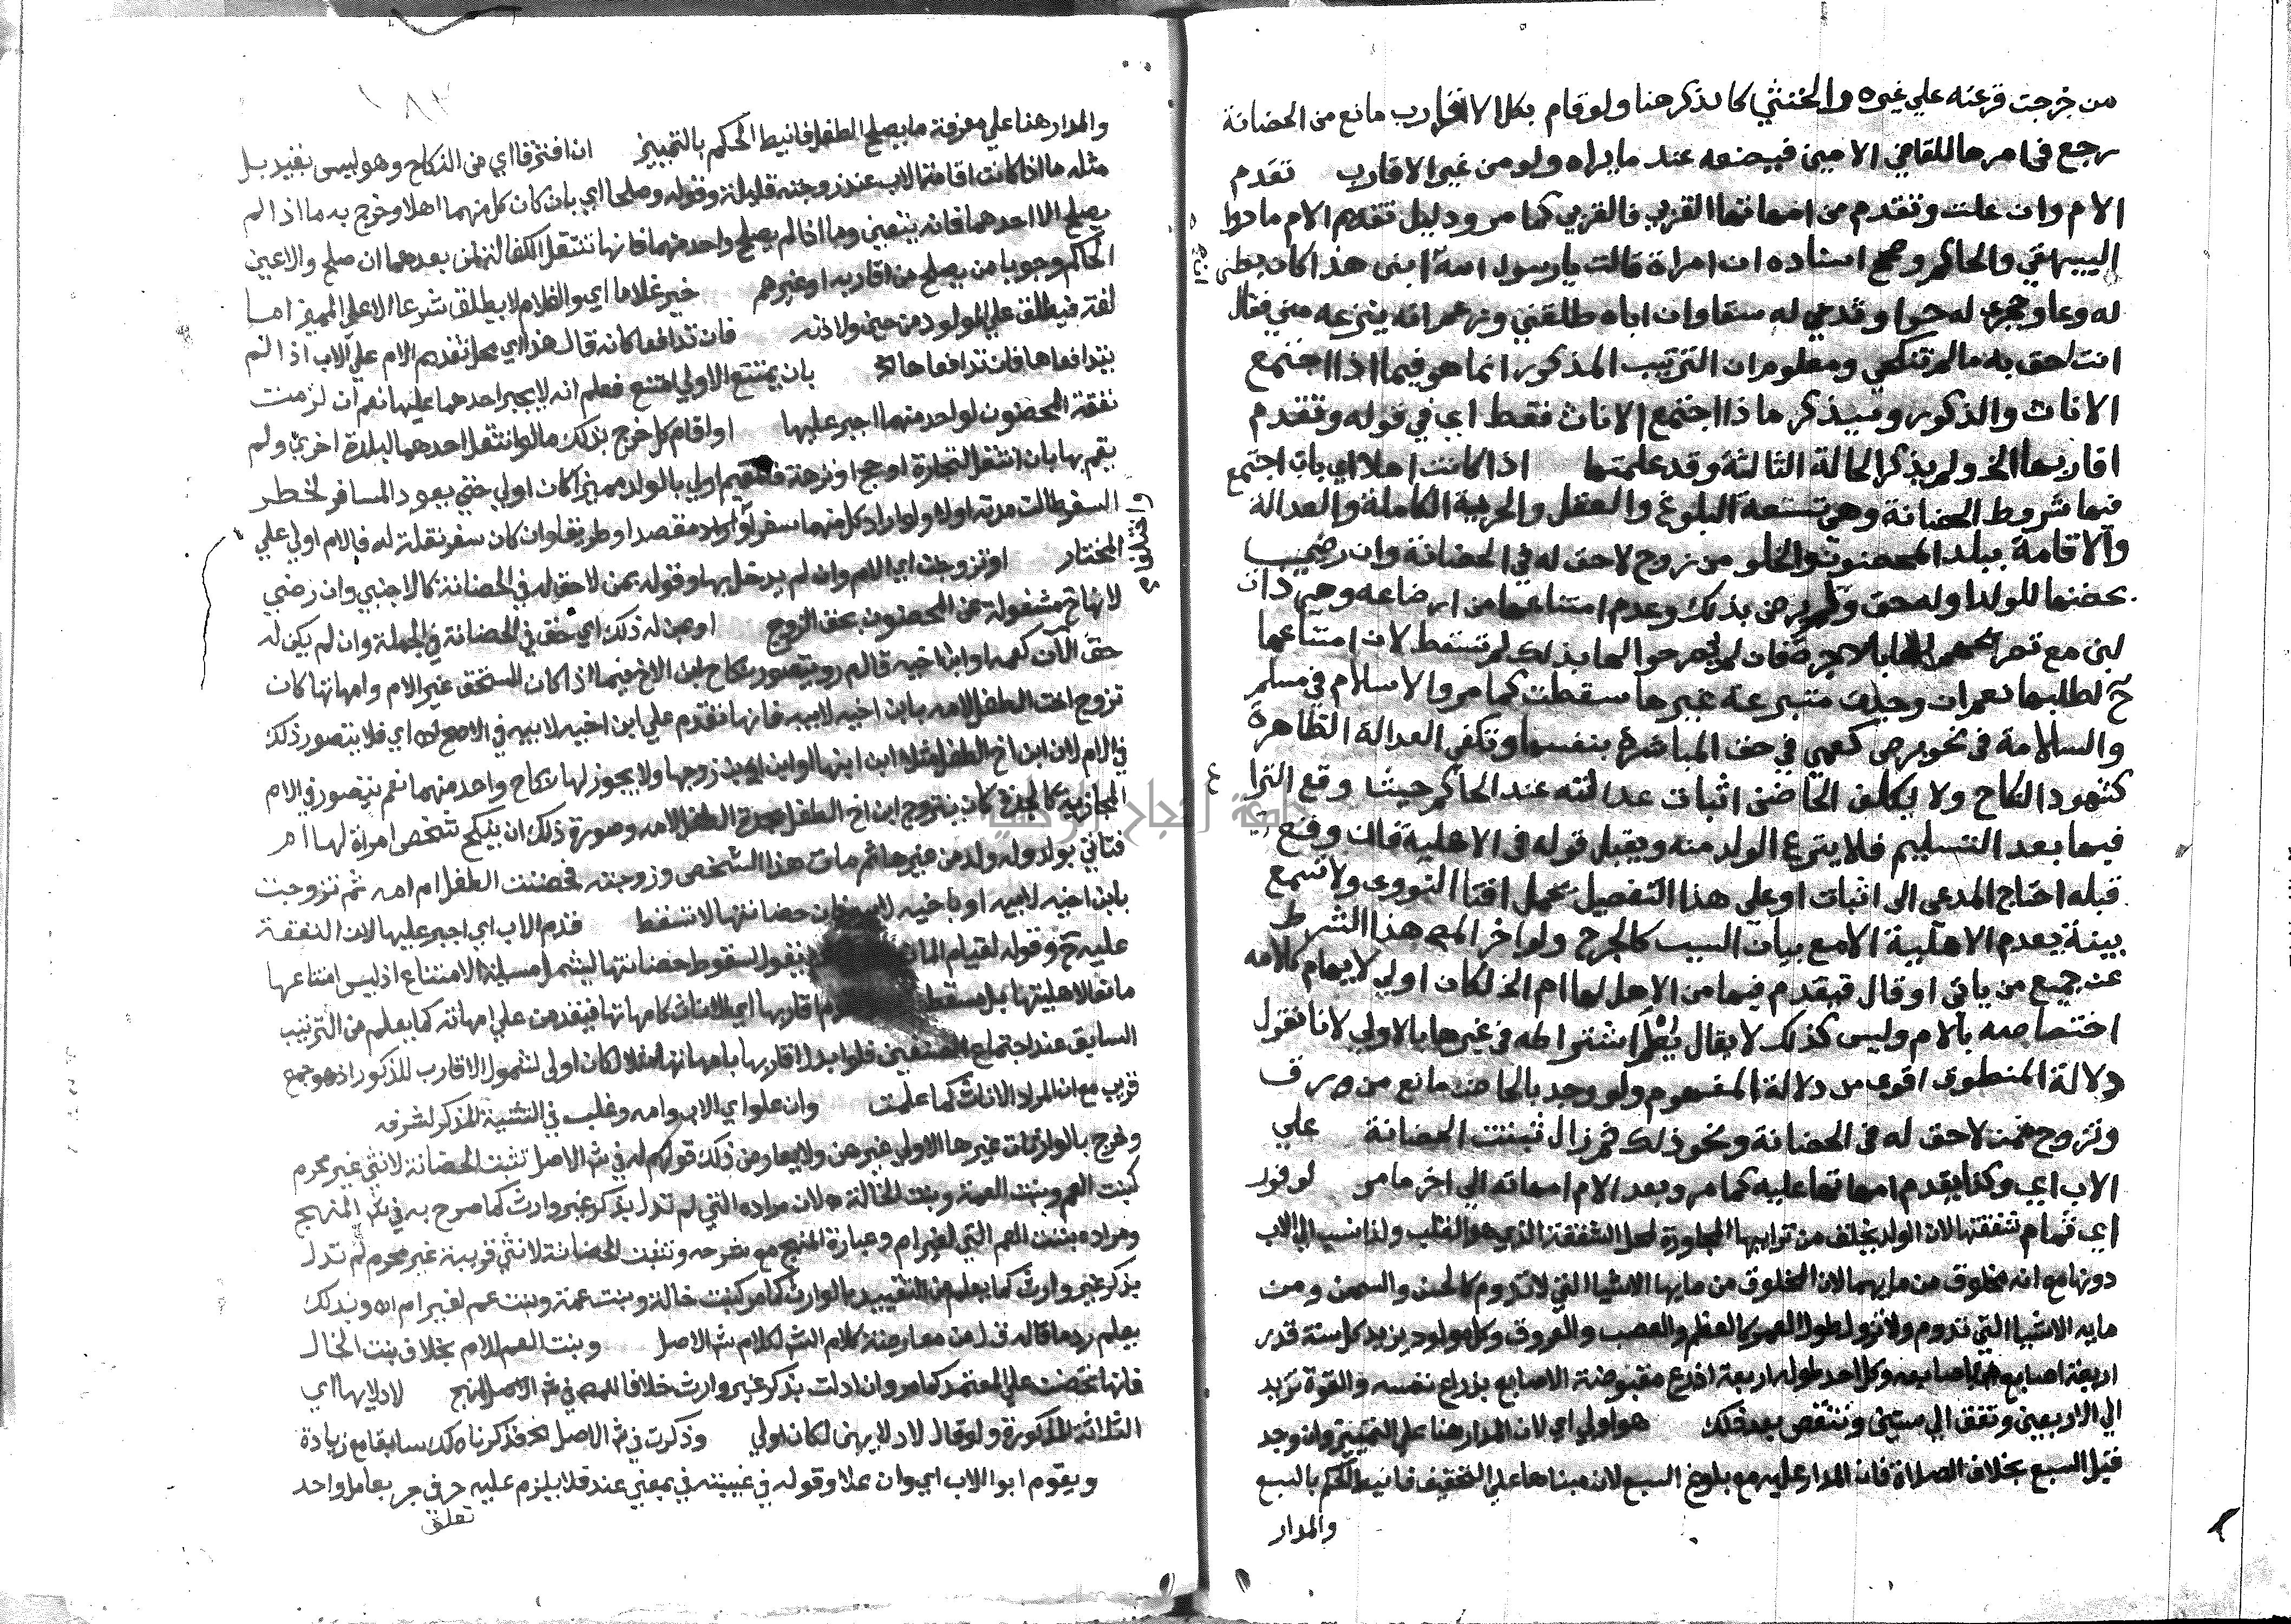 من خرجت قرعته علي غيره والخنثي كما تذكر هنا ولو قام بكل الاقارب مانع من الحضانة
رجع في امرها للقاضي الامين فيضعه عند ما يراه ولو من غير الاقارب تقدم
الام وان علت وتقدم من امهاتها القربي فالقربي كما مر ودليل تقديم الام ما رواه
البيهقي والحاكم وصحح اسناده ان امراة قالت يا رسول الله ابني هذا كان بطني
له وعا وحجري له حوا وثدي له سقا وان اباه طلقني وزعم انه ينزعه مني فقال
انت احق به ما لم تنكحي ومعلوم ان الترتيب المذكور انما هو فيما اذا اجتمع
الاناث والذكور وسيذكر ما ذا اجتمع الاناث فقط اي في قوله وتقدم
اقاربها الخ ولم يذكر الحالة الثالثة وقد علمتها اذا كانت اهلا اي بان اجتمع
فيها شروط الحضانة وهي تسعة البلوغ والعقل والحرية الكاملة والعدالة
والاقامة ببلد المحضون والخلو من زوج لا حق له في الحضانة وان رضي
بحضنها للولد اوله حق ولم يرض بذلك وعدم امتناعها من ارضاعه وهي ذات
لبن مع تبرع لها بالاجرة فان لم يصرحوا لها بذلك لم تسقط لان امتناعها
ح لطلبها نعم ان وجدت متبرعة غيرها سقطت كما مر والاسلام في مسلم
والسلامة في نحو برص كعمي في حق المباشرة بنفسها وتكفي العدالة الظاهرة
كشهود النكاح ولا يكلف الحاضن اثبات عدالته عند الحاكم حيث وقع النزا
فيها بعد التسليم فلا ينزع الولد منه ويقبل قوله في الاهلية فان وقع
قبله احتاج المدعي الي اثبات وعلي هذا التفصيل يحمل افتا النووي ولا تسمع
بينة بعدم الاهلية الا مع بيان السبب كالجرح ولو اخر المص هذا الشرط
عن جميع من ياتي او قال فيقدم فيها من الاهل لها ام الخ لكان اولي لايهام كلامه
اختصاصه بالام وليس كذلك لا يقال يعلم اشتراطه في غيرها بالاولي لانا نقول
دلالة المنطوق اقوي من دلالة المفهوم ولو وجد بالحاضنه مانع من ورق
وتزوج بمن لا حق له في الحضانة ونحو ذلك ثم زال ثبتت الحضانة علي
الاب اي وكذا يقدم امهاتها عليه كما مر وبعد الام امهاته الي اخر ما مر لوفور
اي تمام شفقتها لان الولد يخلق من ترايبها المجاورة لمحل الشفقة الذي هو القلب ولذا نسب الي الاب
دونها مع انه مخلوق من مايهما لان المخلوق من مايها الاشيا التي لا تدوم كالحسن والسمن ومن
مايه الاشيا التي تدوم ولا تزول طول العمر كالعظم والعصب والعروق وكل مولود يزيد كل سنة قدر
اربعة اصابع باصابعه وكل احد طوله اربعة اذرع مقبوضة الاصابع بذراع نفسه والقوة تزيد
الي الاربعين وتقف الي ستين وتنقص بعد ذلك هو اولي اي لان المدار هنا علي التمييز وان وجد
قبل السبع بخلاف الصلاة فان المدار عليه مع بلوغ السبع لان مبناها علي التخفيف فانيط الحكم بالسبع
والمدار
والمدار هنا علي معرفة ما يصلح الطفل فانيط الحكم بالتمييز ان افترقا اي من النكاح وهو ليس بقيد بل
مثله ما اذا كانت اقامة الاب عند زوجته قليلة وقوله وصلحا اي بان كان كل منهما اهلا وخرج به ما اذا لم
يصلح الا احدهما فانه يتعين وما اذا لم يصلح واحد منهما فانها تنتقل الكفالة لمن بعدهما ان صلح والا عين
الحاكم وجوبا من يصلح من اقاربه او غيرهم خير غلاما اي والغلام لا يطلق شرعا الا علي المميز اما
لغة فيطلق علي المولود من حين ولادته فان تدافعا كانه قال هذا اي محل تقديم الام علي الاب اذا لم
يتدافعاها فان تدافعاها الخ بان يمتنع الاولي امتنع فعلم انه لا يجبر احدهما عليها نعم ان لزمت
نفقة المحضون لواحد منهما اجبر عليها او اقام كل خرج بذلك ما لو انتقل احدهما لبلدة اخري ولم
يقم بها بان انتقل لتجارة او حج او نزهة فالمقيم اولي بالولد مميزا كان اولي حتي يعود المسافر لخطر
السفر طالت مدته اولا ولو اراد كل منهما سفرا واختلفا مقصدا وطريقا وان كان سفر نقلة له فالام اولي علي
المختار او تزوجت اي الام وان لم يدخل بها وقوله بمن لا حق له في الحضانة كالاجنبي وان رضي
لانها ح مشغولة عن المحضون بحق الزوج او بمن له ذلك اي حق في الحضانة في الجملة وان لم يكن له
حق الان كعمه وابن اخيه قال م ر ويتصور نكاح ابن الاخ فيما اذا كان المستحق غير الام وامهاتها كان
تزوج اخت الطفل لامه بابن اخيه لابيه فانها تقدم علي ابن اخيه لابيه في الاصح اه اي فلا يتصور ذلك
في الام لان ابن اخ الطفل مثلا ابن ابنها او ابن ابن زوجها ولا يجوز لها نكاح واحد منهما نعم يتصور في الام
المجازية كالجدة كان يتزوج ابن اخ الطفل بجدة الطفل لامه وصورة ذلك ان ينكح شخص امراة لها ام
فتاتي بولد وله ولد من غيرها ثم مات هذا الشخص وزوجته فحضنت الطفل ام امه ثم تزوجت
بابن اخيه لابيه او باخيه لابيه فان حضانتها لا تسقط قدم الاب اي اجبر عليها لان النفقة
عليه ح وقوله لقيام المانع يقول لسقوط حضانتها ليشمل مسيلة الامتناع اذ ليس امتناعها
مانعا لاهليتها بل مسقط اقاربها اي الاناث كامهاتها فيقدمن علي امهاته كما يعلم من الترتيب
السابق عند اجتماع الصنفين فلو ابدل اقاربها بامهاتها مثلا لكان اولي لشمول الاقارب للذكور اذ هو جمع
قريب مع ان المراد الاناث كما علمت وان علو اي الاب وامه وغلب في التثنية المذكر لشرفه
وخرج بالوارثات غيرها الاولي غيرهن ولا ومن ذلك قولهم في ش الاصل تثبت الحضانة لانثي غير محرم
كبنت العم وبنت العمة وبنت الخالة لان مراده التي لم تدل بذكر غير وارث كما صرح به في ش المنهج
ومراده ببنت العم التي لغير ام وعبارة المنهج مع شرحه وتثبت الحضانة لانثي قريبة غير محرم لم تدل
بذكر غير وارث كما يعلم من التقييد بالوارث كما مر كبنت خالة وبنت عمة وبنت عم لغير ام اه وبذلك
يعلم رد ما قاله ق ل من معارضة كلام الش لكلام ش الاصل وبنت العم للام بخلاف بنت الخال
فانها تحضن علي المعتمد كما مر وان ادلت بذكر غير وارث خلافا للمص في ش الاصل والمنهج لادلايها اي
الثلاثة المذكورة ولو قال لادلايهن لكان اولي وذكرت في ش الاصل الخ قد ذكرناه لك سابقا مع زيادة
ويقوم ابو الاب اي وان علا وقوله في غيبته في بمعني عند فلا يلزم عليه حرفي جر بعامل واحد
تعلق